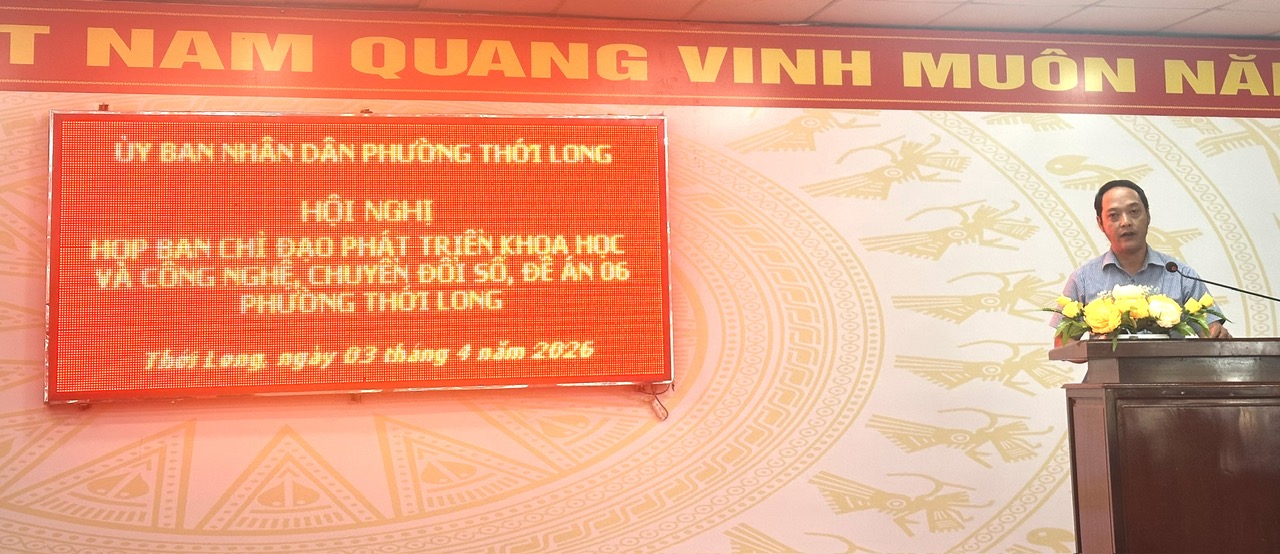 T NAM QUANG VINH MUÔN NĂ
ỦY BAN NHÂN DÂN PHƯỜNG THỚI LONG
HỘI NGHỊ
HỌP BAN CHỈ ĐẠO PHÁT TRIỂN KHOA HỌC
VÀ CÔNG NGHỆ, CHUYỂN ĐỔI SỐ, ĐỀ ÁN 06
PHƯỜNG THỚI LONG
Thới Long, ngày 03 tháng 4 năm 2026